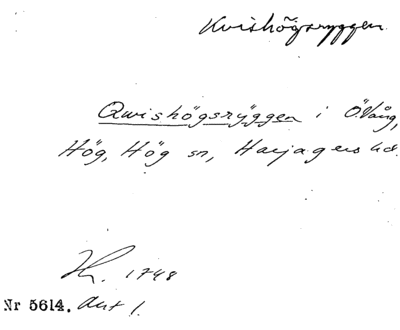 Kvishögsryggen
Qwishögsrÿggen i Ö. Vång,
Hög, Hög sn, Harjagers hd.
1748
Nr 5614. Akt 1.